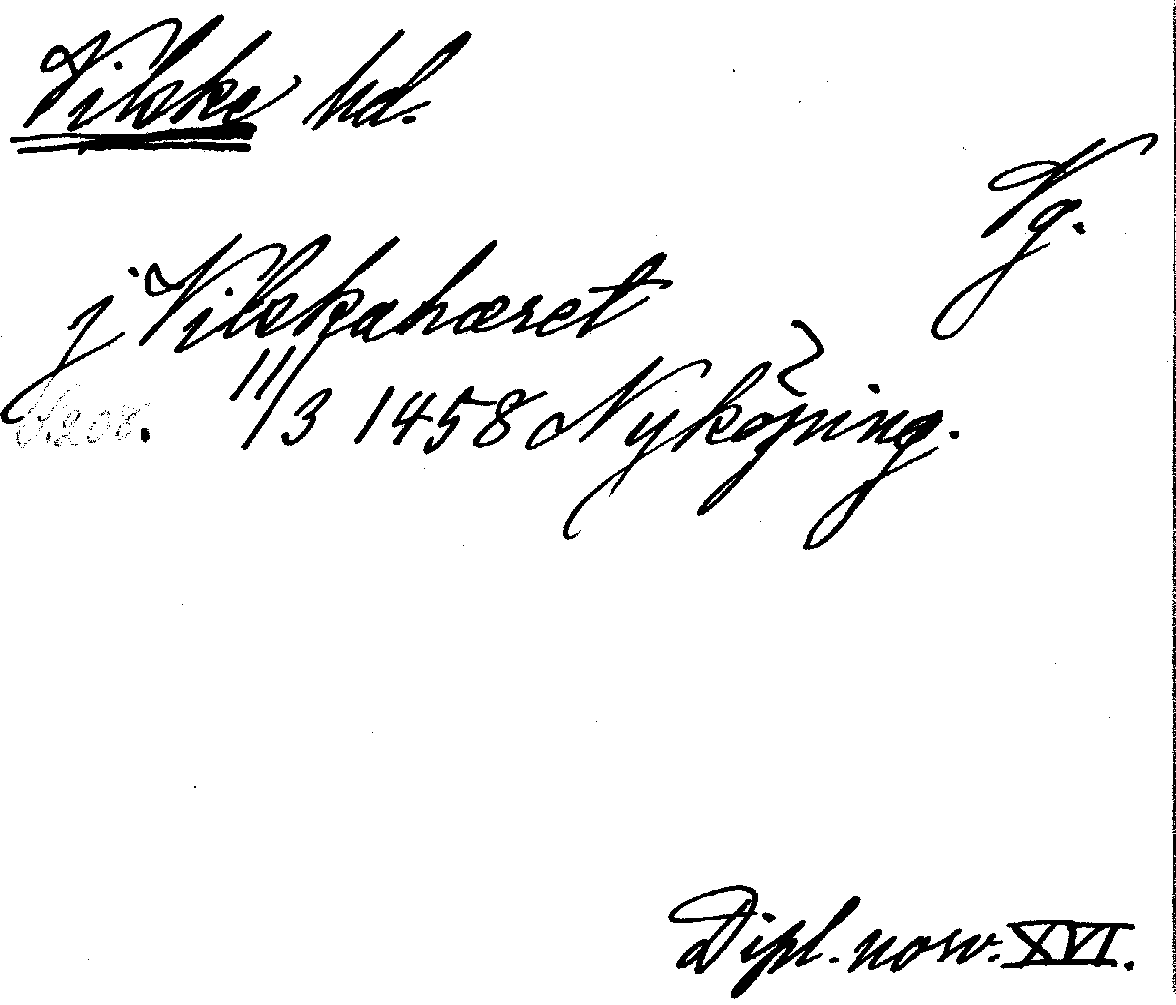 Vilske hd.
Vg.
j Vilskahæret
S. 208. 11/3 1458 Nyköping.
Dipl. norv. XVI.